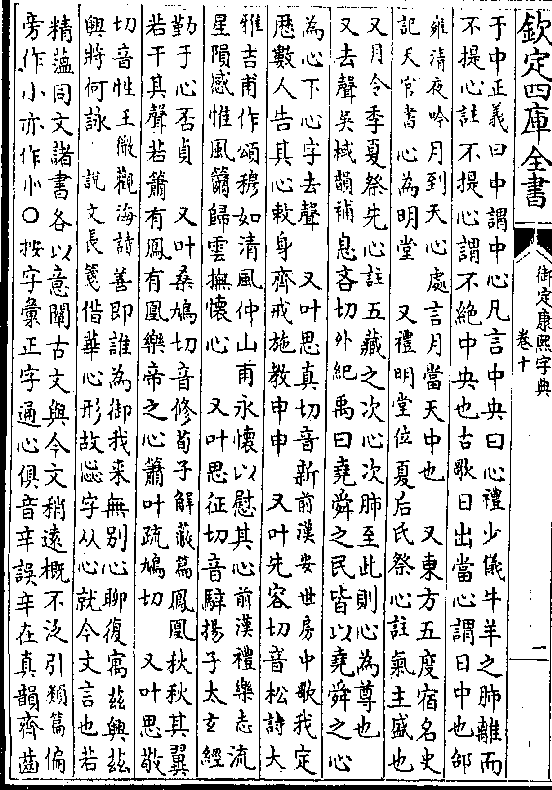 欽定四庫全書
御定康熙字典
卷十
一
于中正義曰中謂中心凡言中央曰心禮少儀牛羊之肺離而
不提心註不提心謂不絶中央也古歌日出當心謂日中也邵
雍清夜吟月到天心處言月當天中也　又東方五度宿名史
記天官書心為明堂　又禮明堂位夏后氏祭心註氣主盛也
又月令季夏祭先心註五藏之次心次肺至此則心為尊也
又去聲吳棫韻補息吝切外紀禹曰堯舜之民皆以堯舜之心
為心下心字去聲　又叶思真切音新前漢安世房中歌我定
厯數人告其心敕身齊戒施教申申　又叶先容切音松詩大
雅吉甫作頌穆如清風仲山甫永懐以慰其心前漢禮樂志流
星隕感惟風籋歸雲撫懐心　又叶思征切音騂揚子太𤣥經
勤于心否貞　又叶桑鳩切音修荀子解蔽篇鳳凰秋秋其翼
若干其聲若簫有鳳有凰樂帝之心簫叶疏鳩切　又叶思敬
切音性王微觀海詩善即誰為御我来無别心聊復寓兹興兹
興將何詠　說文長箋借華心形故𢗰字从心就今文言也若
精藴同文諸書各以意闡古文與今文稍遠概不泛引類篇偏
旁作小亦作㣺○按字彙正字通心俱音辛誤辛在真韻齊齒